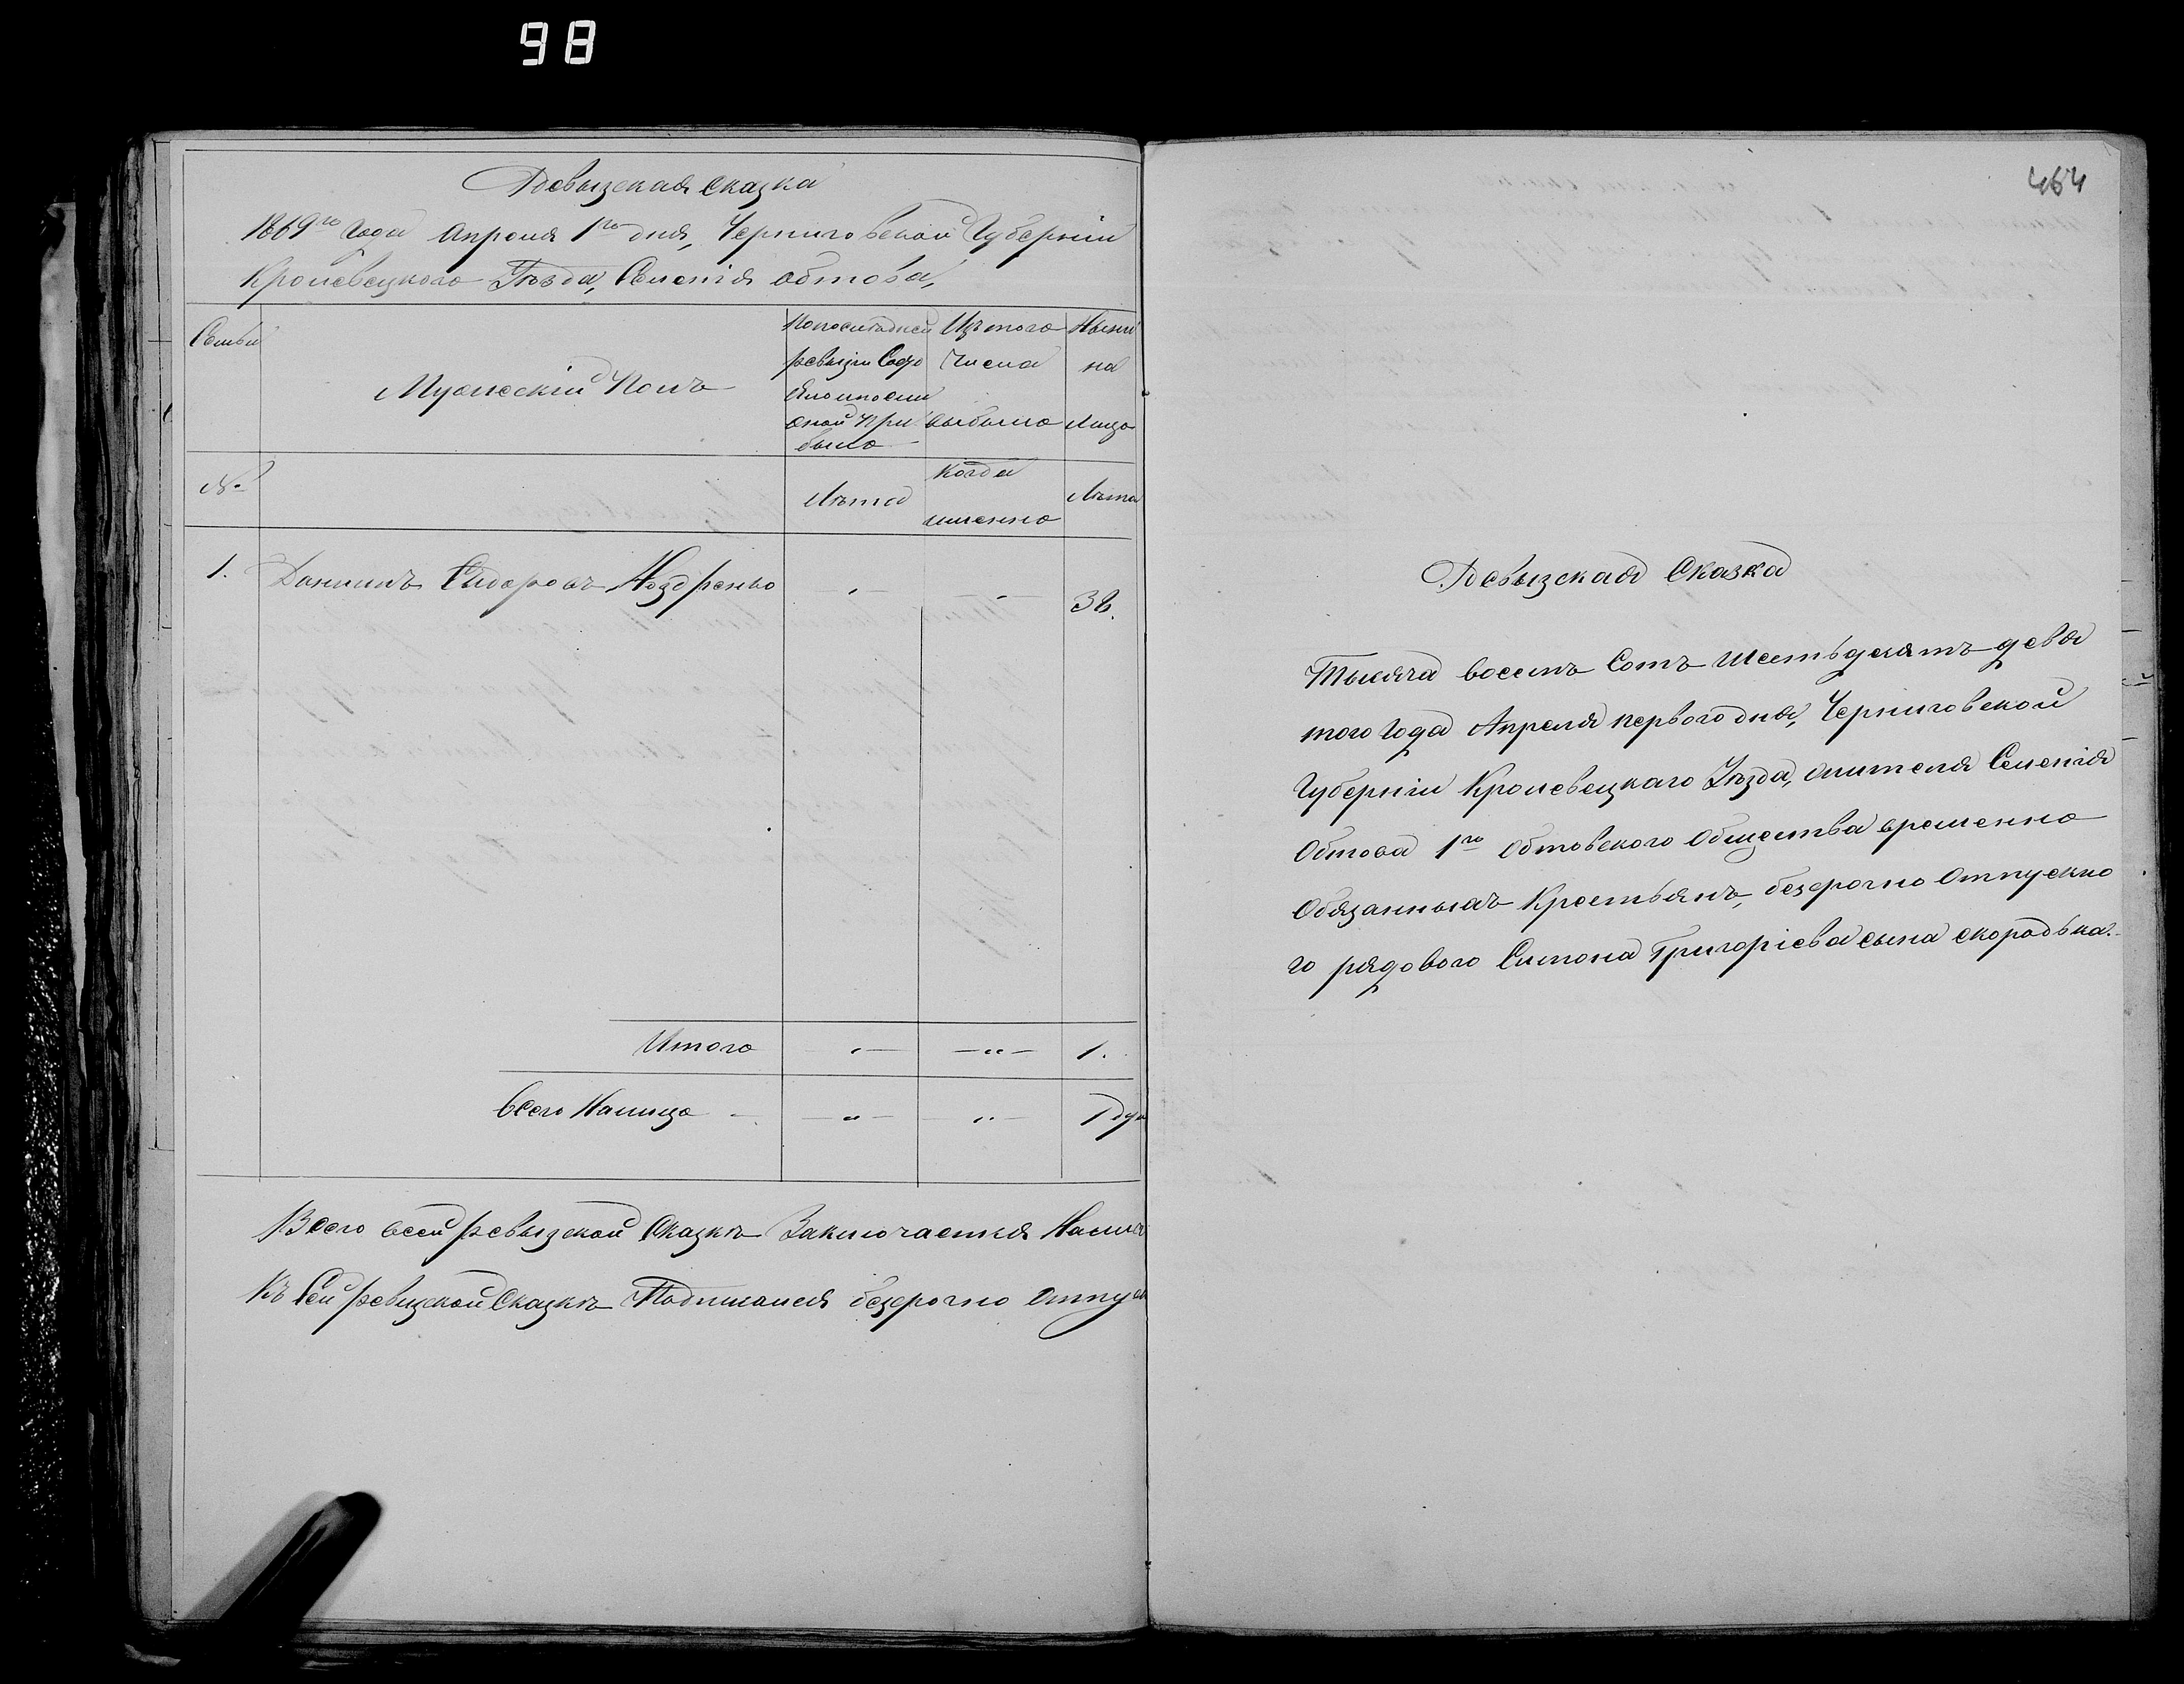 98
Ревызская Сказка
1869го Года Апреля 1го дня, Черниговской Губернiи
Кролевецкого Уѣзда, Селенiя Обтова,
Семьи
Мужескiй Полъ
По последней ревызiи Состояло и после оной при было
Изъ того Числа выбыло
Ныни на лицо
№
Лѣта
Когда именно
Лѣта
1. Данiилъ Сидоровъ Ноздренко 38.
Итого 1.
Всего Налицо 1 душ
Всего всей ревызской Сказкѣ Заключается Налич
Къ Сей ревызской Сказкѣ Подписался безсрочно Отпуск
464
Ревызская Сказка
Тысяча восемъ Сотъ Шестьдесятъ девя
того Года Апреля первого дня, Черниговской
Губернiи Кролевецкаго Уѣзда, жителя Селенiя
Обтова 1го Обтовского Общества временно
Обязанныхъ Крестьянъ, безсрочно Отпускно
го рядового Симона Григорiева сына скородька.